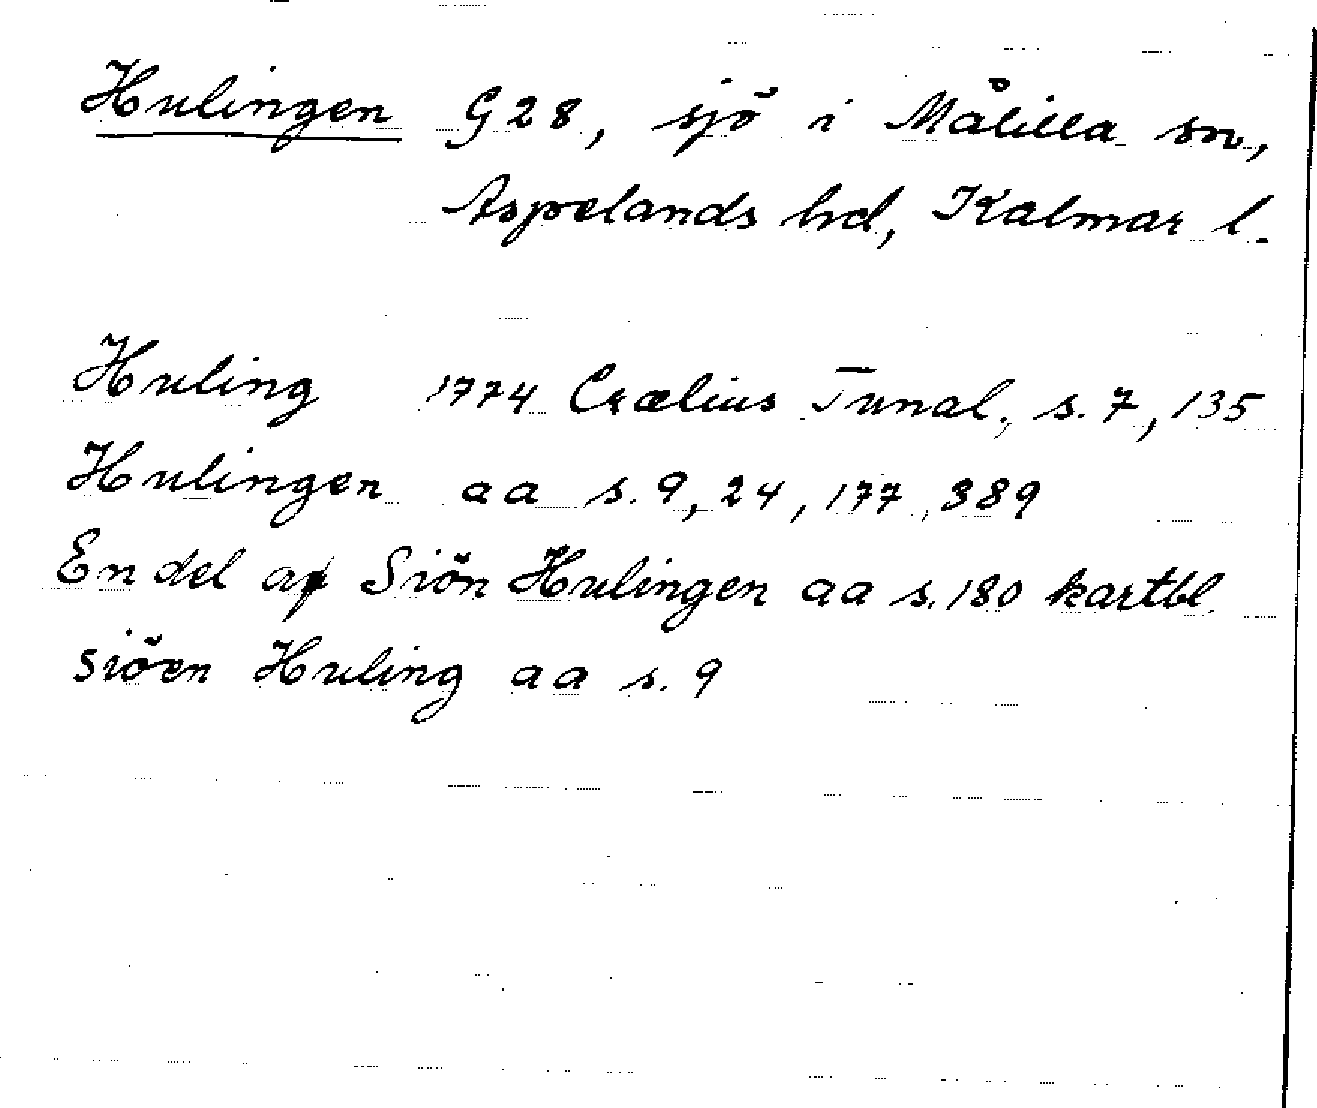 Hulingen G28, sjö i Målilla sn,
Aspelands hd, Kalmar l.
Huling 1774 Crælius Tunal. s. 7, 135
Hulingen aa s. 9, 24, 177, 389
En del af Siön Hulingen aa s. 180 kartbl
siöen Huling aa s. 9